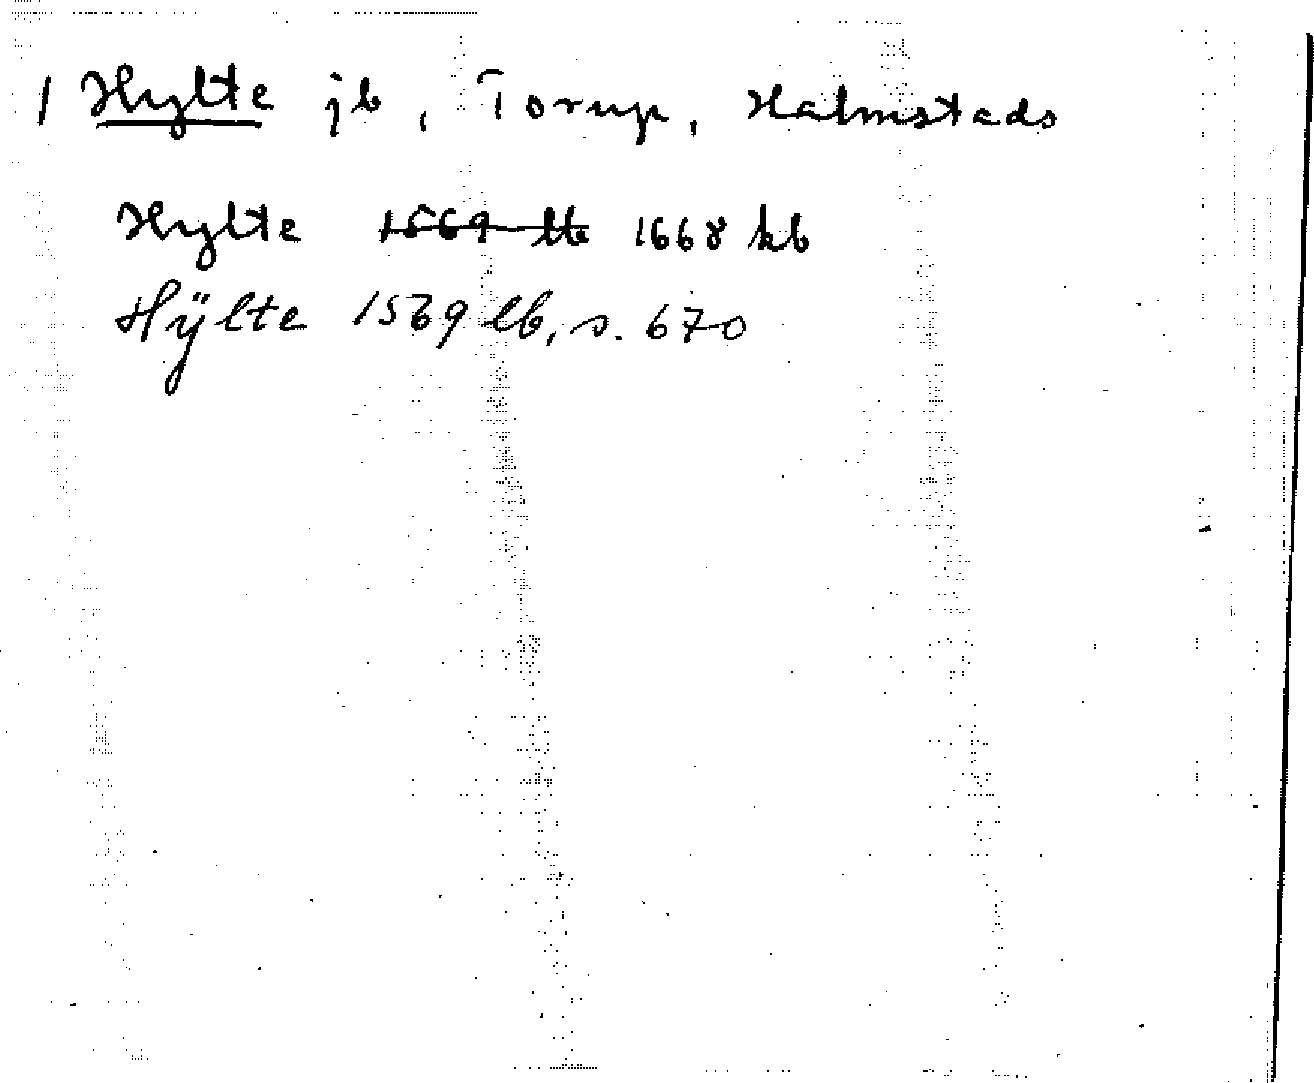 1 Hylte jb, Torup, Halmstads
Hylte 1569 lb 1668 kb
Hÿlte 1569 lb, s. 670